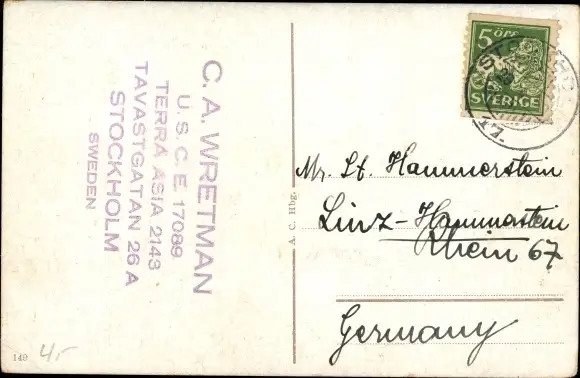 C. A. WRETMAN
U. S. C. E. 17089
TERRA ASIA 2143
TAVASTGATAN 26 A
STOCKHOLM
SWEDEN
A. C. Hbg.
5 ÖRE
SVERIGE
Mr. St. Hammerstein
Linz-Hammerstein
Rhein 67
Germany
149
4,-